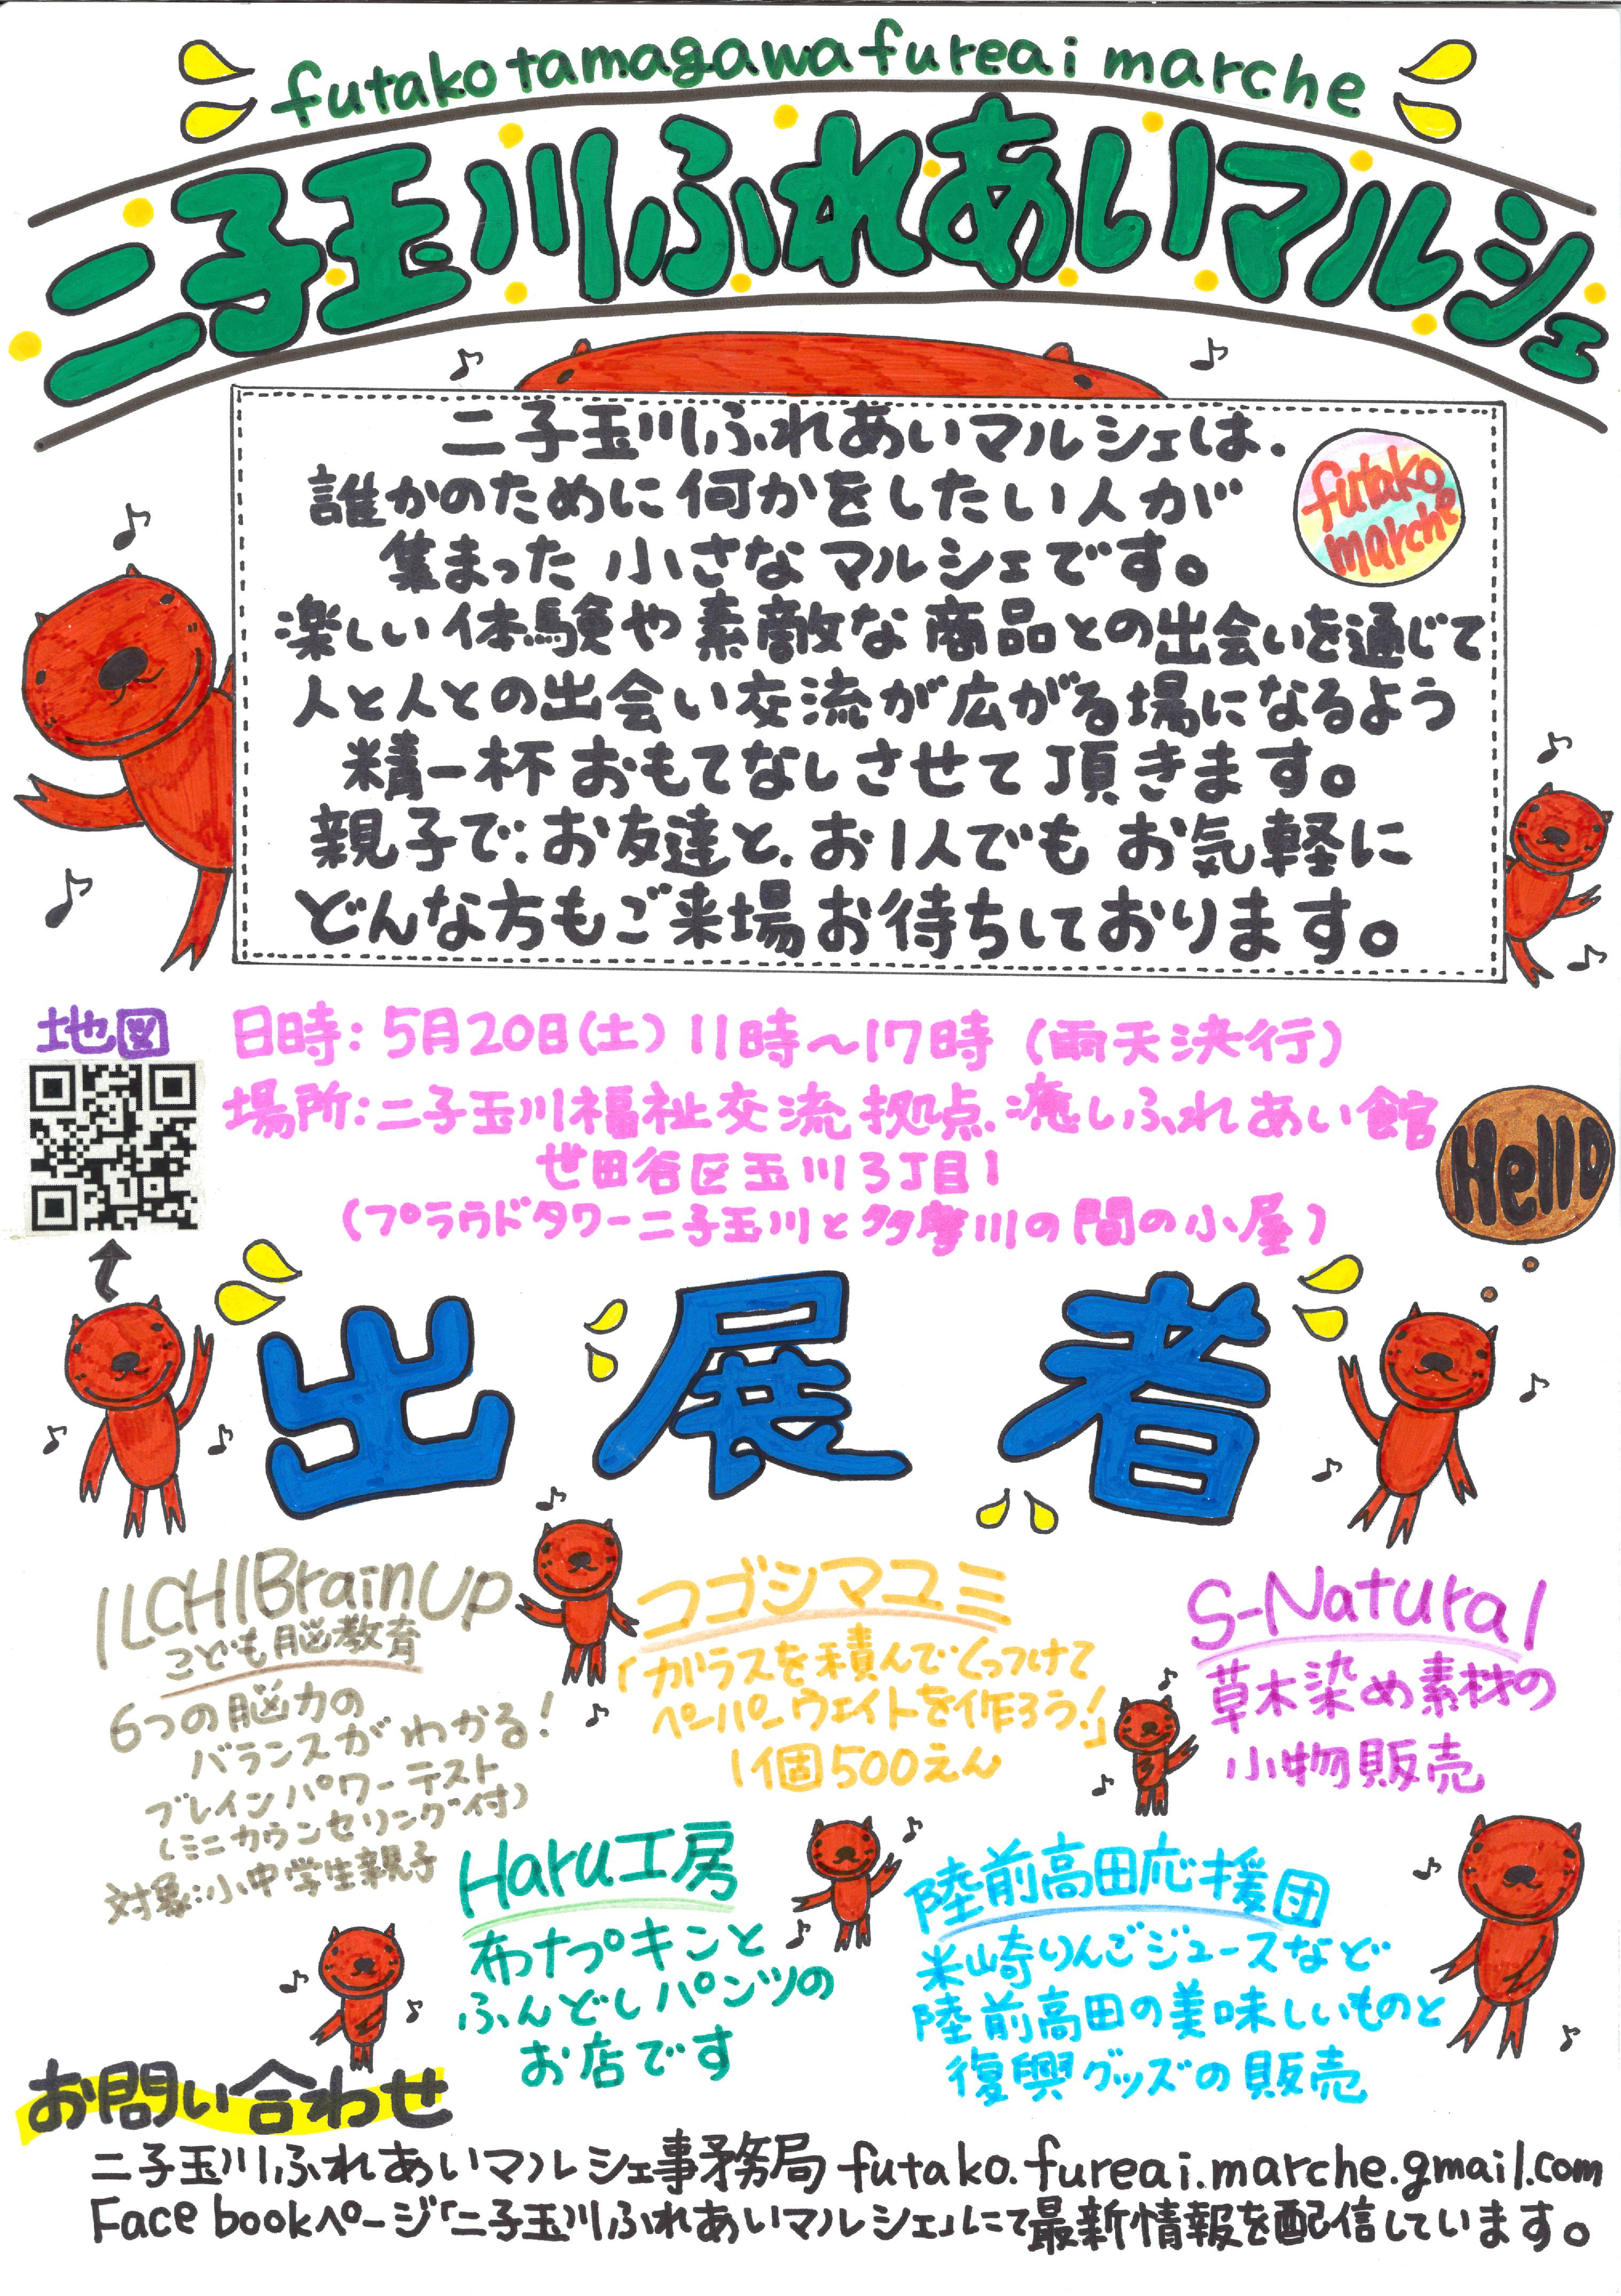 futakotamagawafureai marche
二子玉川ふれあいマルシェ
二子玉川ふれあいマルシェは、
誰かのために何かをしたい人が
集まった小さなマルシェです。
futako
marche
楽しい体験や素敵な商品との出会いを通じて
人と人との出会い交流が広がる場になるよう
精一杯おもてなしさせて頂きます。
親子で、お友達と、お1人でもお気軽に
どんな方もご来場お待ちしております。
地図
日時:5月20日(土)11時~17時(雨天決行)
場所:二子玉川福祉交流拠点、癒しふれあい館
世田谷区玉川3丁目1
(プラウドタワー二子玉川と多摩川の間の小屋)
Hello
出展者
ILCHIBrainUp
こども脳教育
6つの脳力の
バランスがわかる!
ブレインパワーテスト
(ミニカウンセリング付)
対象:小中学生親子
コゴシマユミ
「ガラスを積んでくっつけて
ペーパーウェイトを作ろう!」
1個500えん
S-Natural
草木染め素材の
小物販売
Haru工房
布ナプキンと
ふんどしパンツの
お店です
陸前高田応援団
米崎りんごジュースなど
陸前高田の美味しいものと
復興グッズの販売
お問い合わせ
二子玉川ふれあいマルシェ事務局 futako.fureai.marche.gmail.com
Facebookページ「二子玉川ふれあいマルシェ」にて最新情報を配信しています。